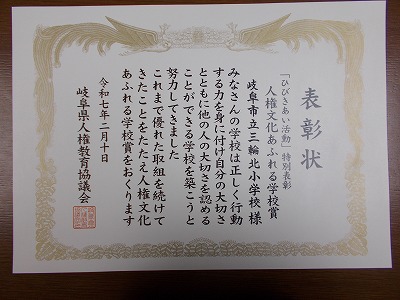 表彰状
「ひびきあい活動」特別表彰
人権文化あふれる学校賞
岐阜市立三輪北小学校 様
みなさんの学校は正しく行動
する力を身に付け自分の大切さ
とともに他の人の大切さを認める
ことができる学校を築こうと
努力してきました
これまで優れた取組を続けて
きたことをたたえ人権文化
あふれる学校賞をおくります
令和七年二月十日
岐阜県人権教育協議会